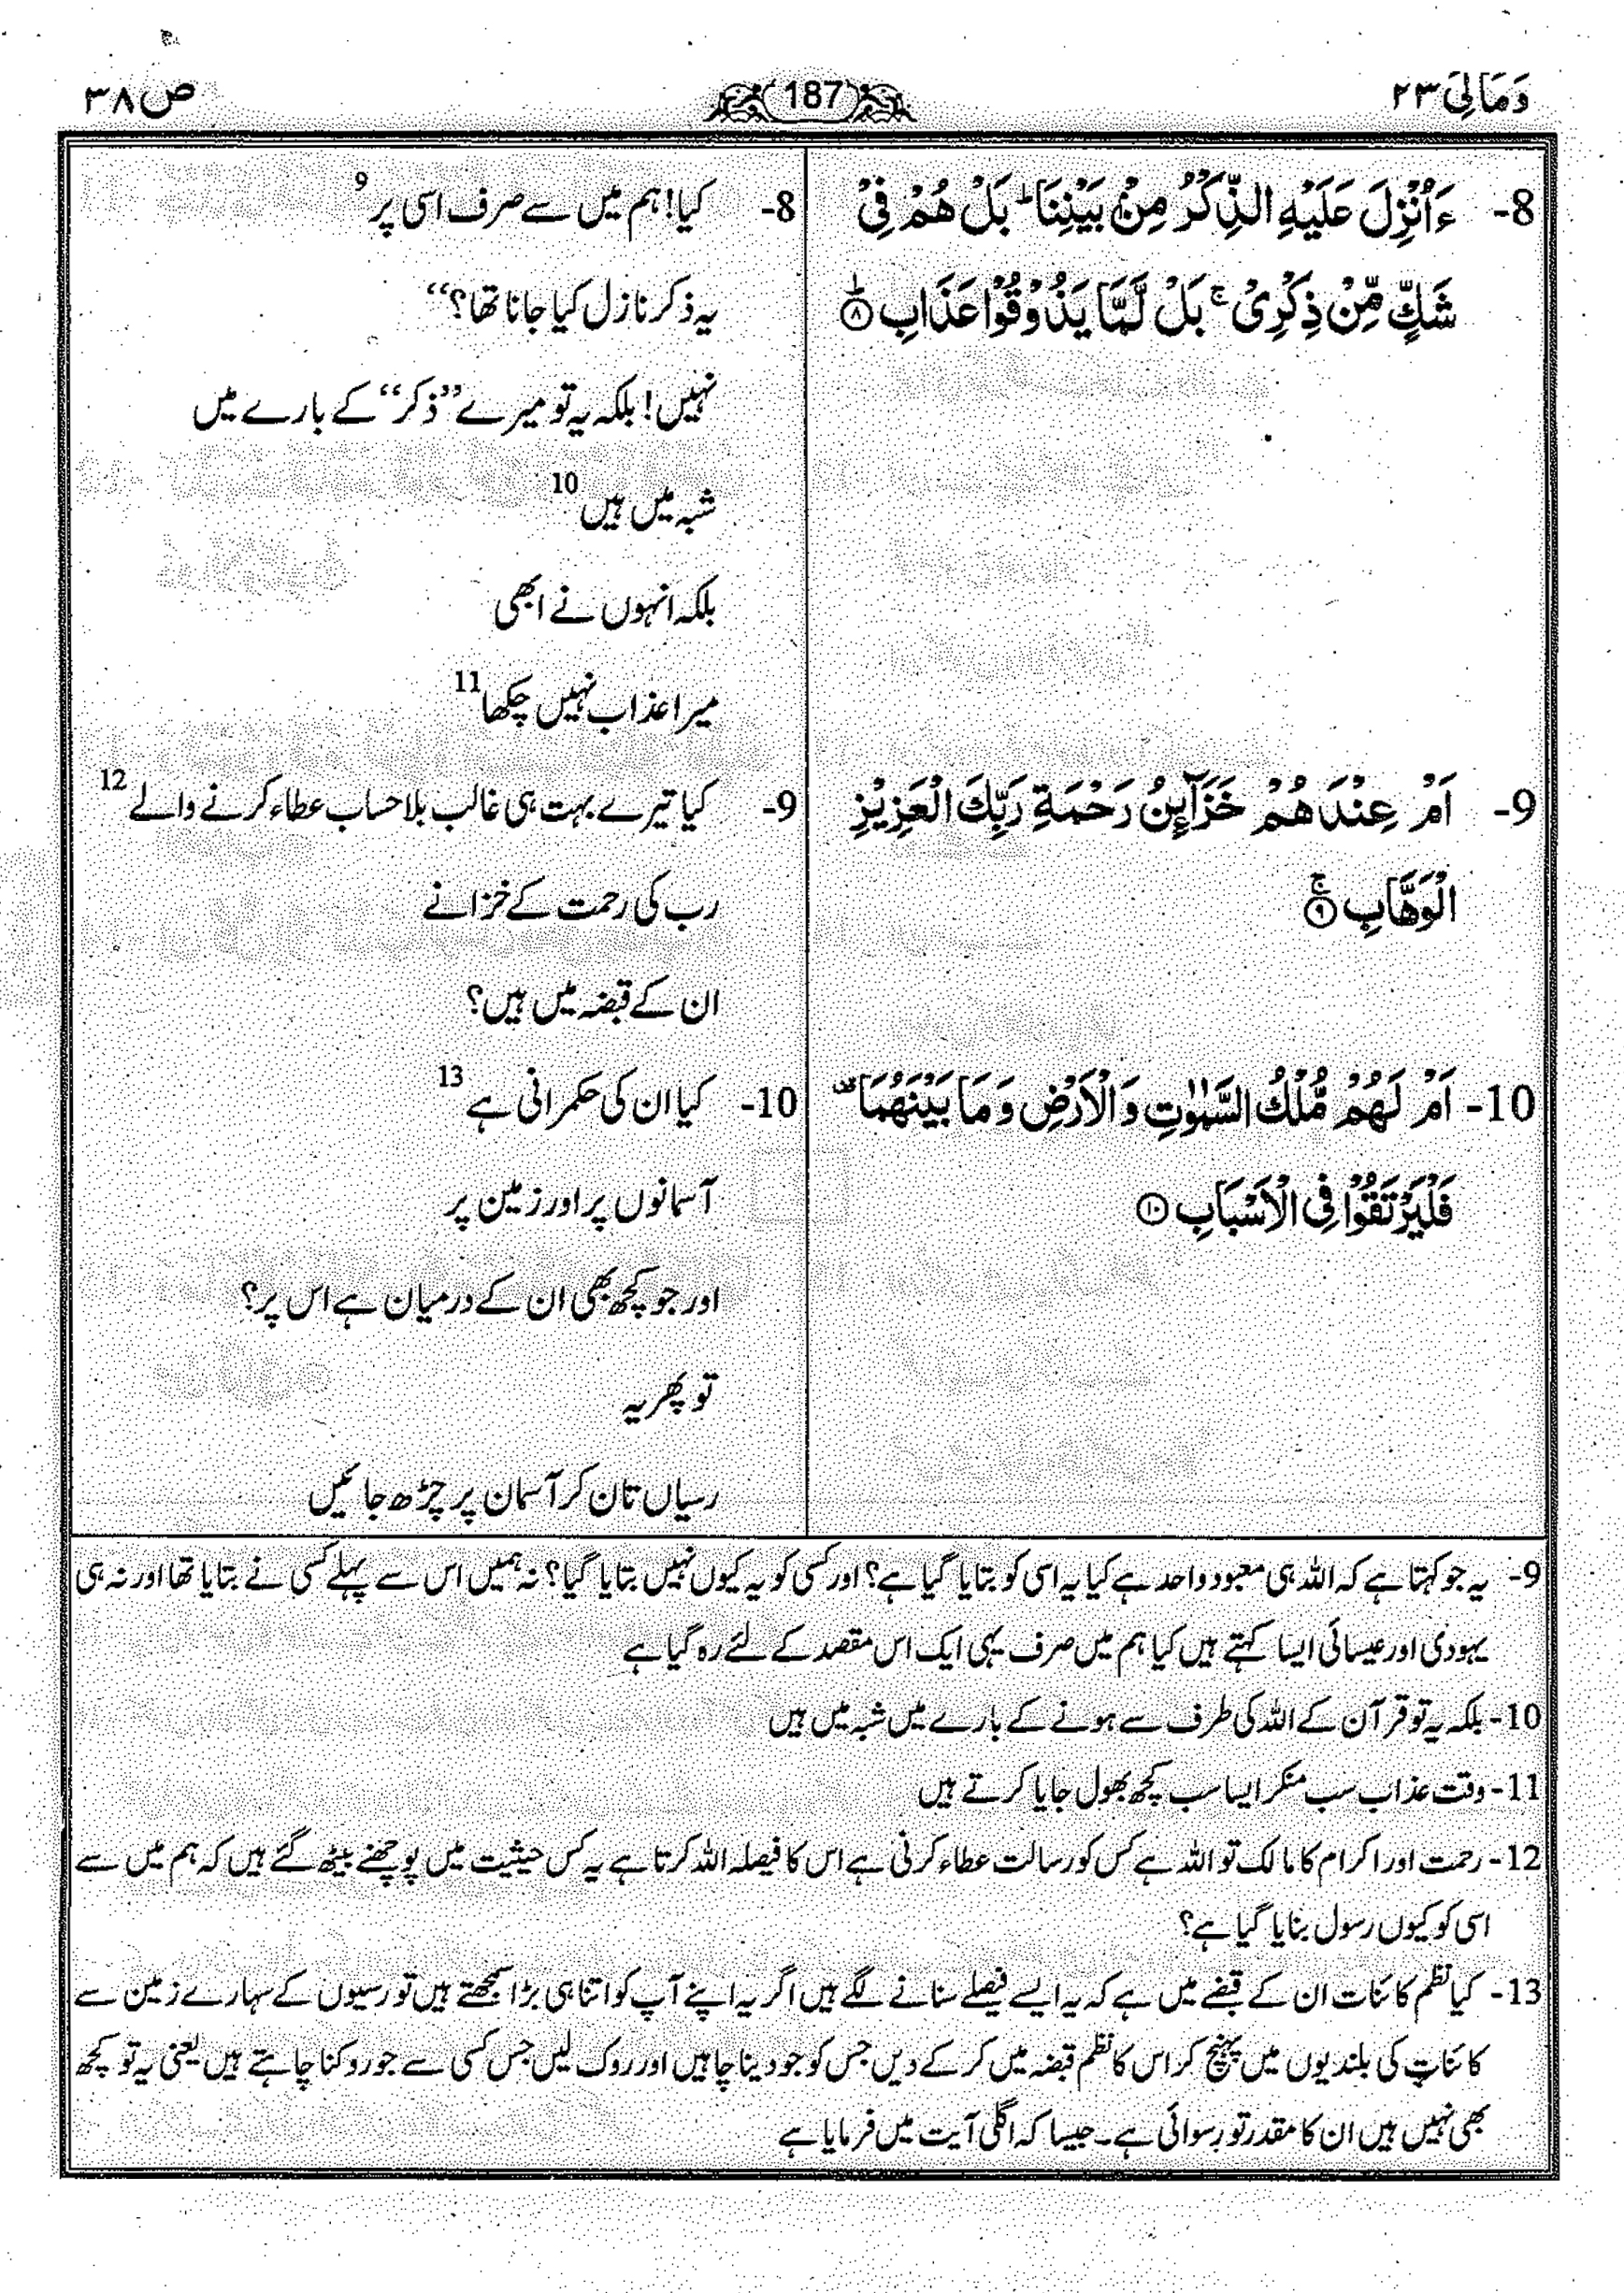 وَمَالِیَ ٢٣
187
ص ٣٨
8- ءَاُنْزِلَ عَلَيْهِ الذِّكْرُ مِنْۢ بَيْنِنَا ؕ بَلْ هُمْ فِیْ
شَكٍّ مِّنْ ذِكْرِیْ ۚ بَلْ لَّمَّا يَذُوْقُوْا عَذَابِ ؕ۝۸
8- کیا! ہم میں سے صرف اسی پر 9
یہ ذکر نازل کیا جانا تھا؟“
نہیں! بلکہ یہ تو میرے ”ذکر“ کے بارے میں
شبہ میں ہیں 10
بلکہ انہوں نے ابھی
میرا عذاب نہیں چکھا 11
9- اَمْ عِنْدَهُمْ خَزَآىِٕنُ رَحْمَةِ رَبِّكَ الْعَزِيْزِ
الْوَهَّابِ ۚ۝۹
9- کیا تیرے بہت ہی غالب بلا حساب عطاء کرنے والے 12
رب کی رحمت کے خزانے
ان کے قبضہ میں ہیں؟
10- اَمْ لَهُمْ مُّلْكُ السَّمٰوٰتِ وَالْاَرْضِ وَمَا بَيْنَهُمَا ۫
فَلْيَرْتَقُوْا فِی الْاَسْبَابِ ۝۱۰
10- کیا ان کی حکمرانی ہے 13
آسمانوں پر اور زمین پر
اور جو کچھ بھی ان کے درمیان ہے اس پر؟
تو پھر یہ
رسیاں تان کر آسمان پر چڑھ جائیں
9- یہ جو کہتا ہے کہ اللہ ہی معبود واحد ہے کیا یہ اسی کو بتایا گیا ہے؟ اور کسی کو یہ کیوں نہیں بتایا گیا؟ نہ ہمیں اس سے پہلے کسی نے بتایا تھا اور نہ ہی
یہودی اور عیسائی ایسا کہتے ہیں کیا ہم میں صرف یہی ایک اس مقصد کے لئے رہ گیا ہے
10- بلکہ یہ تو قرآن کے اللہ کی طرف سے ہونے کے بارے میں شبہ میں ہیں
11- وقت عذاب سب منکر ایسا سب کچھ بھول جایا کرتے ہیں
12- رحمت اور اکرام کا مالک تو اللہ ہے کس کو رسالت عطاء کرنی ہے اس کا فیصلہ اللہ کرتا ہے یہ کس حیثیت میں پوچھنے بیٹھ گئے ہیں کہ ہم میں سے
اسی کو کیوں رسول بنایا گیا ہے؟
13- کیا نظم کائنات ان کے قبضے میں ہے کہ یہ ایسے فیصلے سنانے لگے ہیں اگر یہ اپنے آپ کو اتنا ہی بڑا سمجھتے ہیں تو رسیوں کے سہارے زمین سے
کائنات کی بلندیوں میں پہنچ کر اس کا نظم قبضہ میں کر کے دیں جس کو جو دینا چاہیں اور روک لیں جس کسی سے جو روکنا چاہتے ہیں یعنی یہ تو کچھ
بھی نہیں ہیں ان کا مقدر تو رسوائی ہے۔ جیسا کہ اگلی آیت میں فرمایا ہے